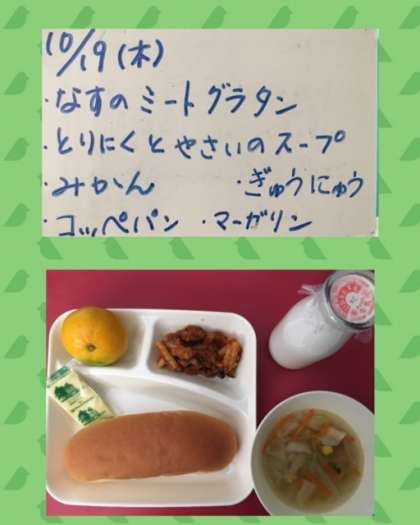 10/19(木)
・なすのミートグラタン
・とりにくとやさいのスープ
・みかん ・ぎゅうにゅう
・コッペパン ・マーガリン